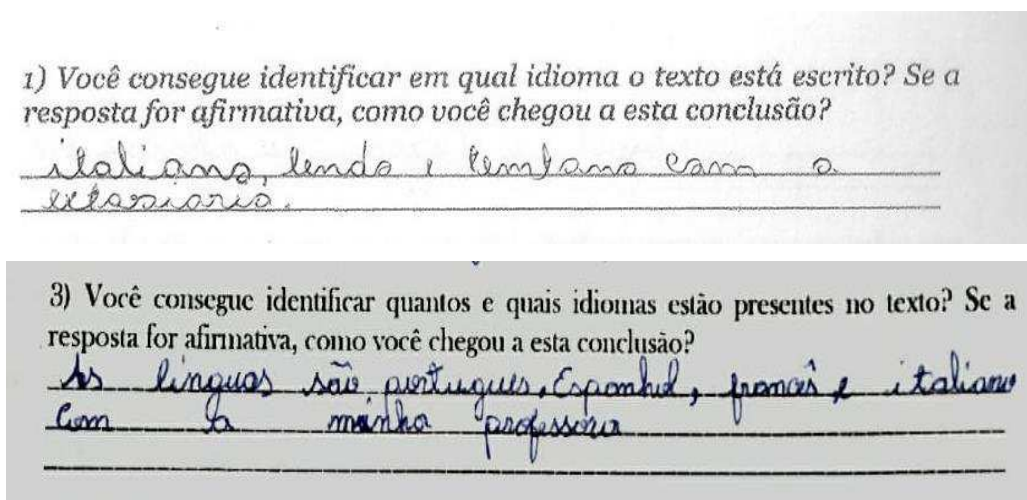 1) Você consegue identificar em qual idioma o texto está escrito? Se a
resposta for afirmativa, como você chegou a esta conclusão?
italiano, lendo e com o
3) Você consegue identificar quantos e quais idiomas estão presentes no texto? Se a
resposta for afirmativa, como você chegou a esta conclusão?
As linguas são portugues, Espanhol, francês e italiano
Com a minha professora